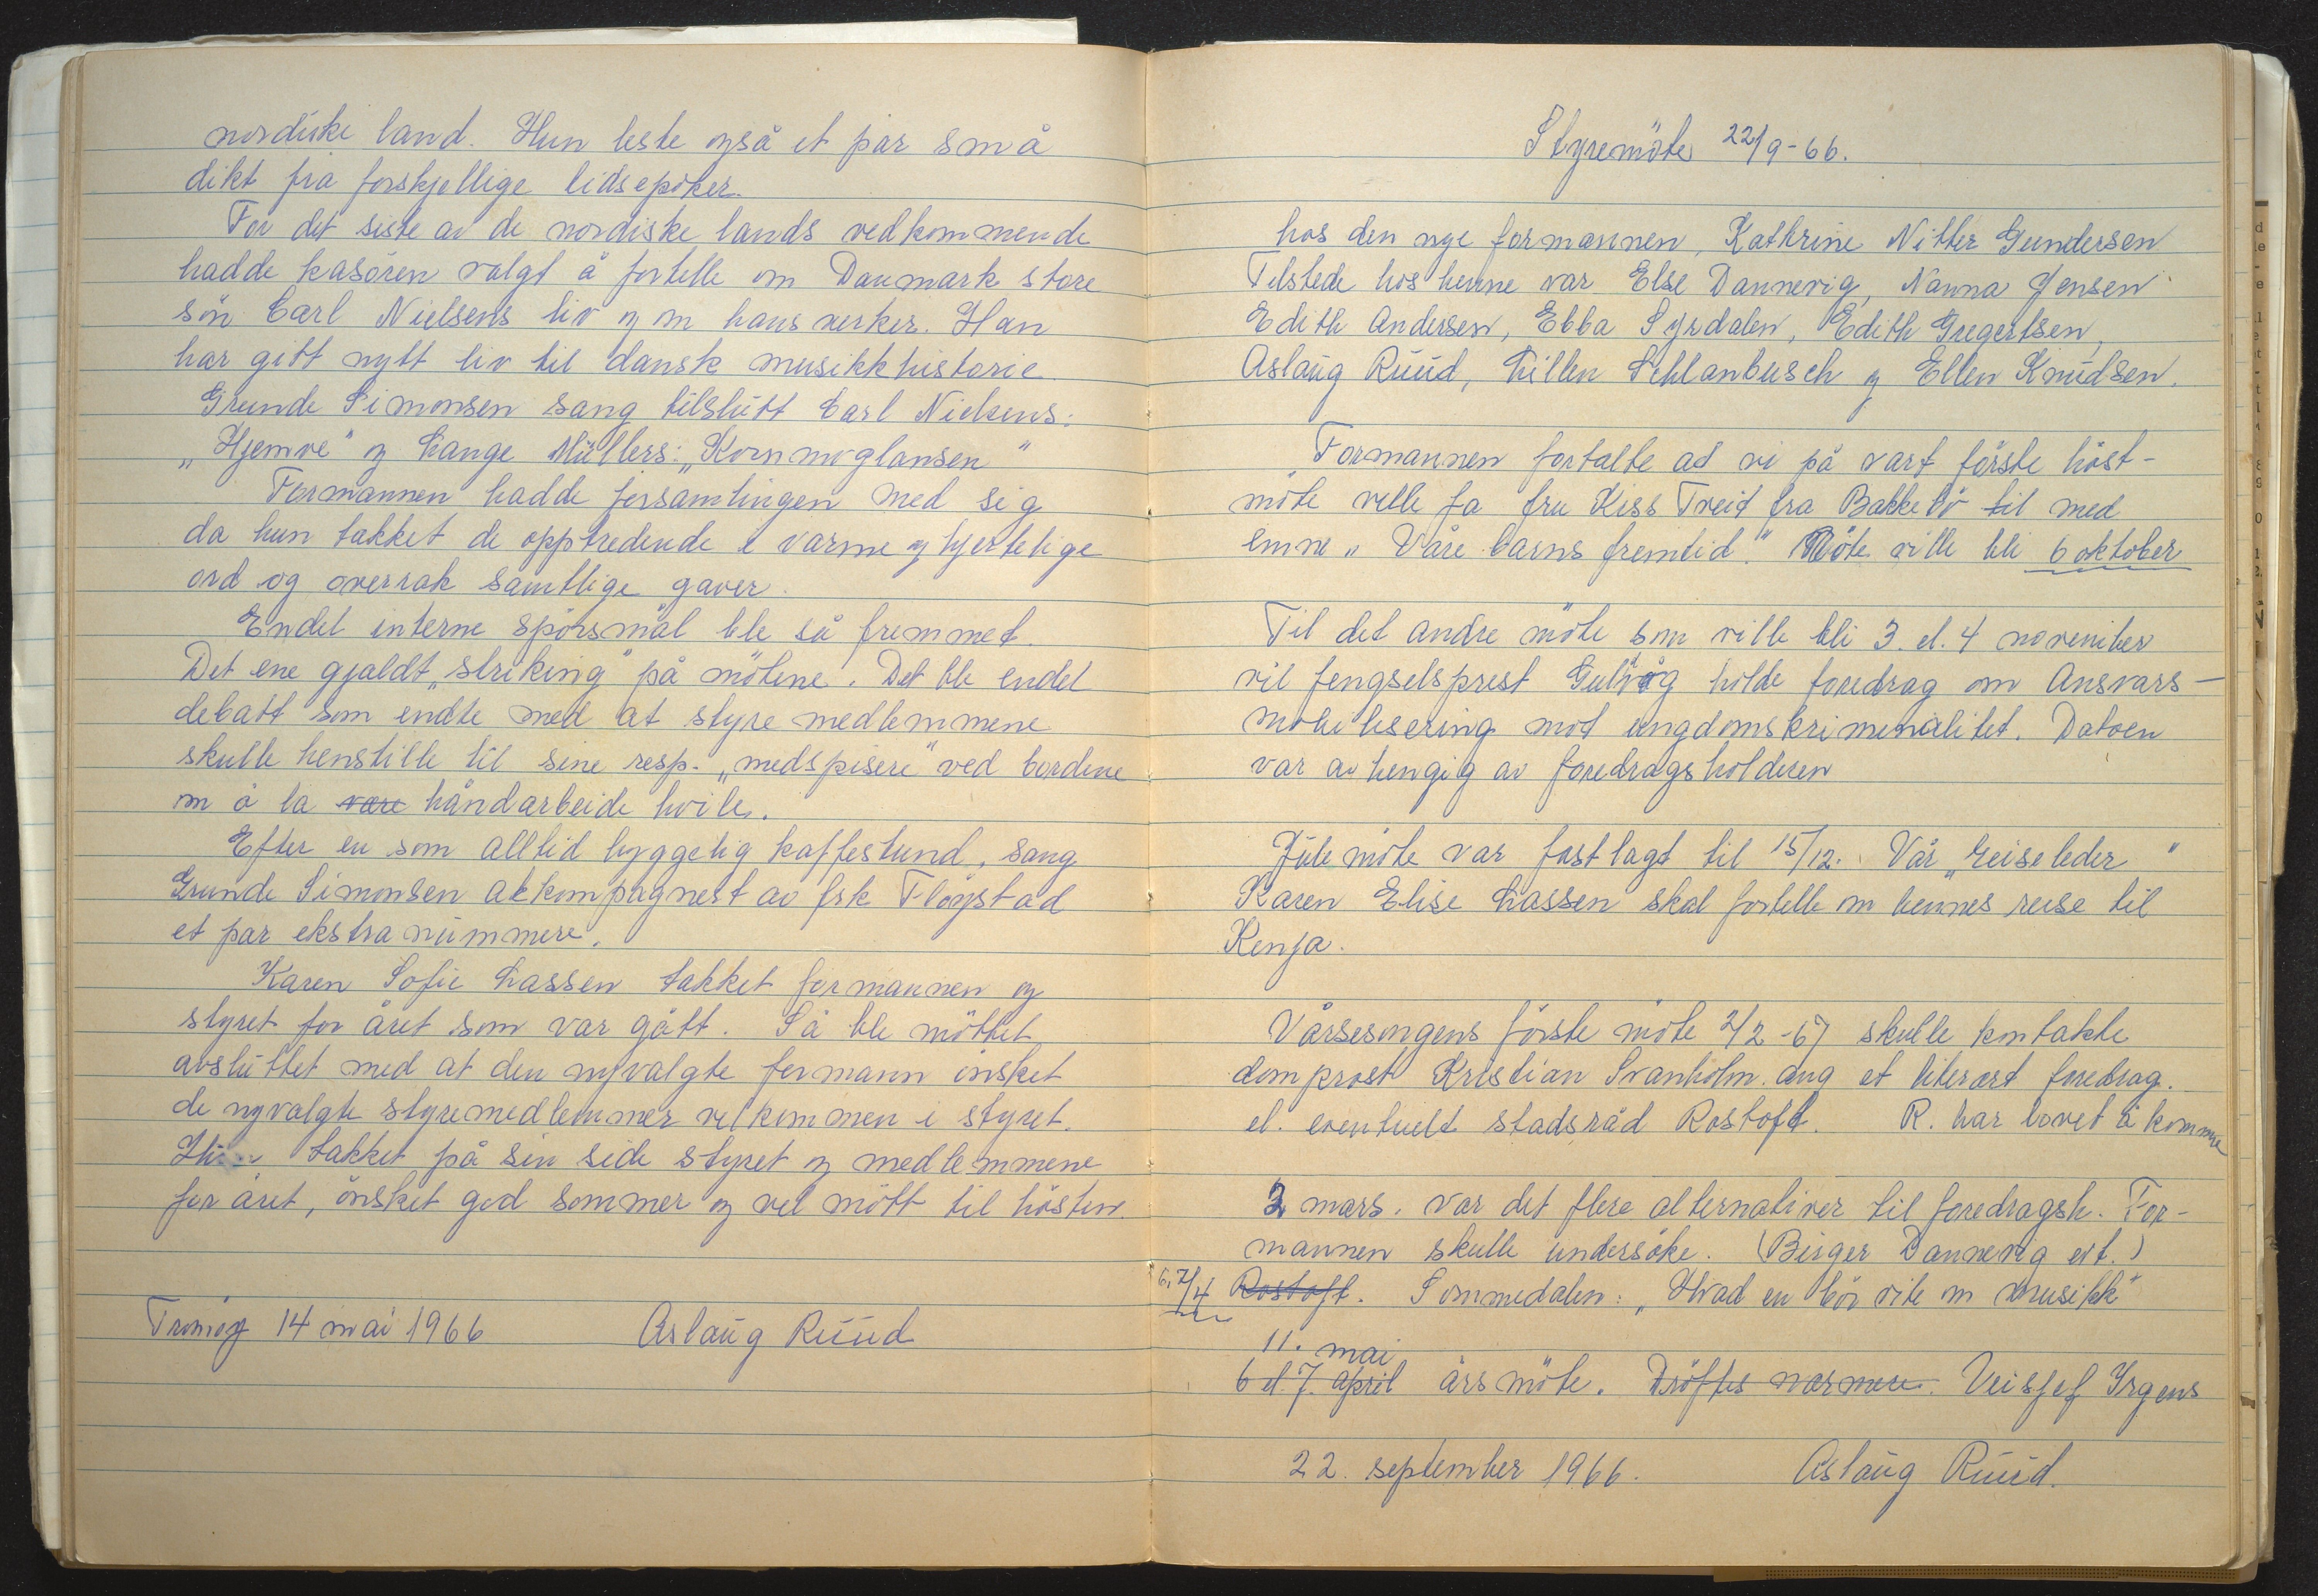 nordiske land. Hun leste også et par små
dikt fra forskjellige tidsepoker.
For det siste av de nordiske lands vedkommende
hadde kasören valgt å fortelle om Danmark store
sön Carl Nielsens liv og om hans verker. Han
har gitt nytt liv til dansk musikkhistorie.
Grunde Simonsen sang tilslutt Carl Nielsens:
„Hjemve" og Lange Müllers: „Kornmoglansen"
Formannen hadde forsamlingen med sig
da hun takket de opptredende i varme og hjertelige
ord og overrak samtlige gaver.
Endel interne spörsmål ble så fremmet.
Det ene gjaldt „striking" på mötene. Det ble endel
debatt som endte med at styre medlemmene
skulle henstille til sine resp. „medspisere" ved bordene
om å la være håndarbeide hvile.
Efter en som alltid hyggelig kaffestund, sang
Grunde Simonsen akkompagnert av frk Flöystad
et par ekstra nummere.
Karen Sofie Lassen takket formannen og
styret for året som var gått. Så ble möttet
avsluttet med at den nyvalgte formann önsket
de nyvalgte styremedlemmer velkommen i styret.
Hun takket på sin side styret og medlemmene
for året, önsket god sommer og vel mött til hösten.
Tromöy 14 mai 1966 Aslaug Ruud
Styremöte 22/9-66.
hos den nye formannen, Kathrine Nitter Gundersen
Tilstede hos henne var Else Dannevig, Nanna Jensen
Edith Andersen, Ebba Syrdalen, Edith Gregertsen,
Aslaug Ruud, Lillen Schlanbusch og Ellen Knudsen.
Formannen fortalte ad vi på vart förste höst-
möte ville fa fru Kiss Tveit fra Bakkebö til med
emne „Våre barns fremtid." Möte ville bli 6 oktober
Til det andre möte som ville bli 3. el. 4 november
vil fengselsprest holde foredrag om Ansvars-
mobilisering mot ungdomskriminalitet. Datoen
var avhengig av foredragsholderen
Jule möte var fastlagt til 15/12. Vår „reiseleder"
Karen Elise Lassen skal fortelle om hennes reise til
Kenja.
Vårsesongens förste möte 2/2-67 skulle kontakte
domprost Kristian Svanholm ang et litterært foredrag.
el. eventuelt stadsråd Rostoft. R. har lovet å komme
2 mars. var det flere alternativer til foredragsh. For-
mannen skulle undersöke. (Birger Dannevig evt.)
6. 7/4 Rostoft. Sommedalen: „Hvad en bör vite om musikk"
11. mai
6 el. 7. april årsmöte. Dröftes nærmere. Veisjef Irgens
22. september 1966. Aslaug Ruud.